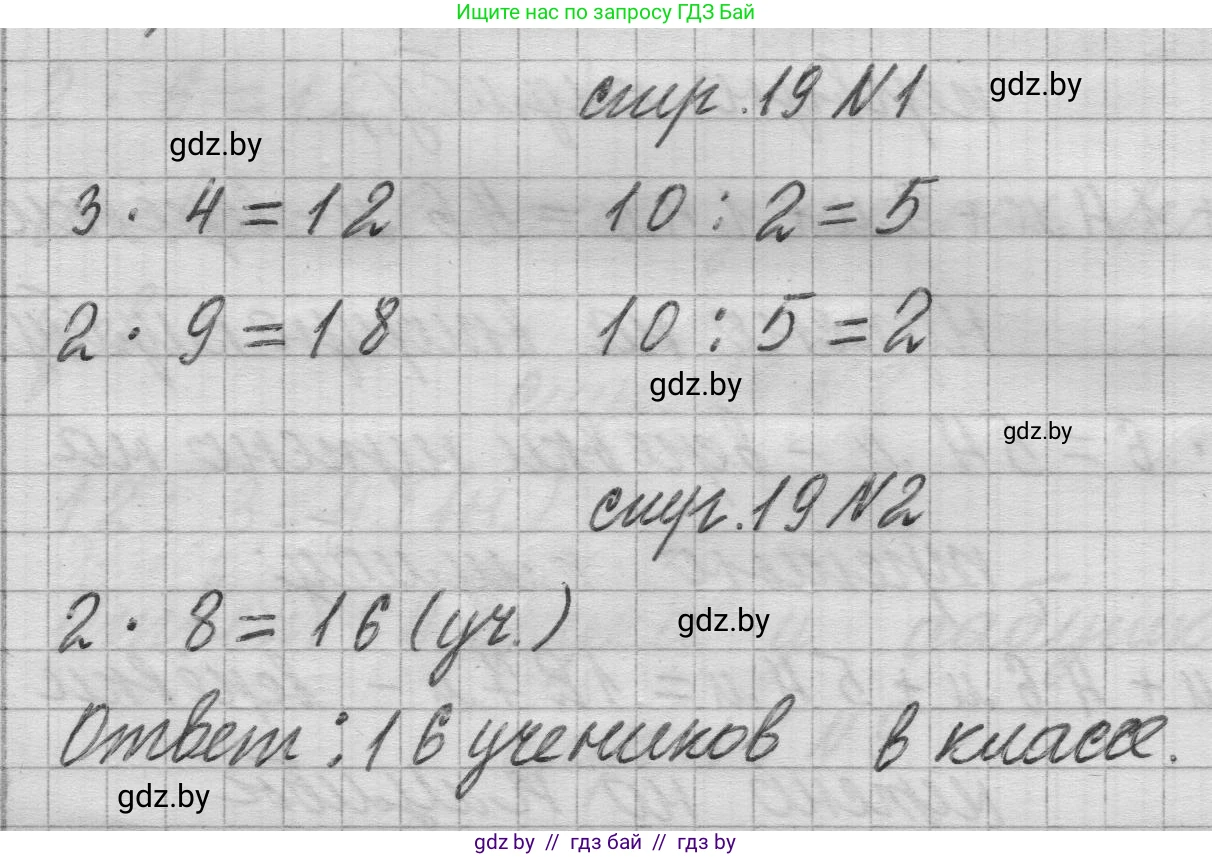 Ищите нас по запросу ГДЗ Бай
стр. 19 N1
gdz.by
gdz.by
3 · 4 = 12 10 : 2 = 5
2 · 9 = 18 10 : 5 = 2
gdz.by
gdz.by
стр. 19 N2
2 · 8 = 16 (уч.)
gdz.by
Ответ : 16 учеников в классе.
gdz.by
gdz.by // гдз бай // гдз by